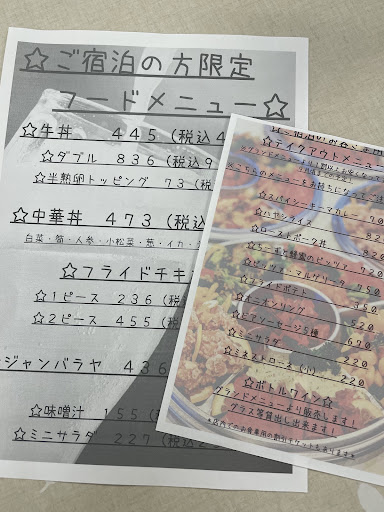 ☆ご宿泊の方限定
フードメニュー☆
☆牛丼 445 (税込4
☆ダブル 836 (税込9
☆半熟卵トッピング 73 (税
☆中華丼 473 (税込
白菜・筍・人参・小松菜・葱・イカ・
☆フライドチキ
☆1ピース 236 (税
☆2ピース 455 (税
ジャンバラヤ 436
☆味噌汁 155 (税
☆ミニサラダ 227 (税込2
☆テイクアウトメニュー
☆スパイシーキーマカレー 700
☆ハヤシライス
☆ローストポーク丼
☆チーズと蜂蜜のピッツァ
☆ピッツァ・マルゲリータ 750
☆フライドポテト 350
☆オニオンリング
☆ビアソーセージ5種 670
☆ミニサラダ 220
☆ミネストローネ(小) 220
☆ボトルワイン☆
グランドメニューより販売します!
グラス等貸し出し出来ます!
*店内でのお食事用の割引チケットもあります*